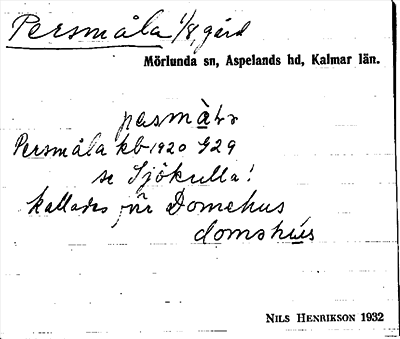 Persmåla 1/8, gård
Mörlunda sn, Aspelands hd, Kalmar län.
Persmåla kb 1920 G29
se Sjökulla!
kallades förr Domehus
domshús
NILS HENRIKSON 1932